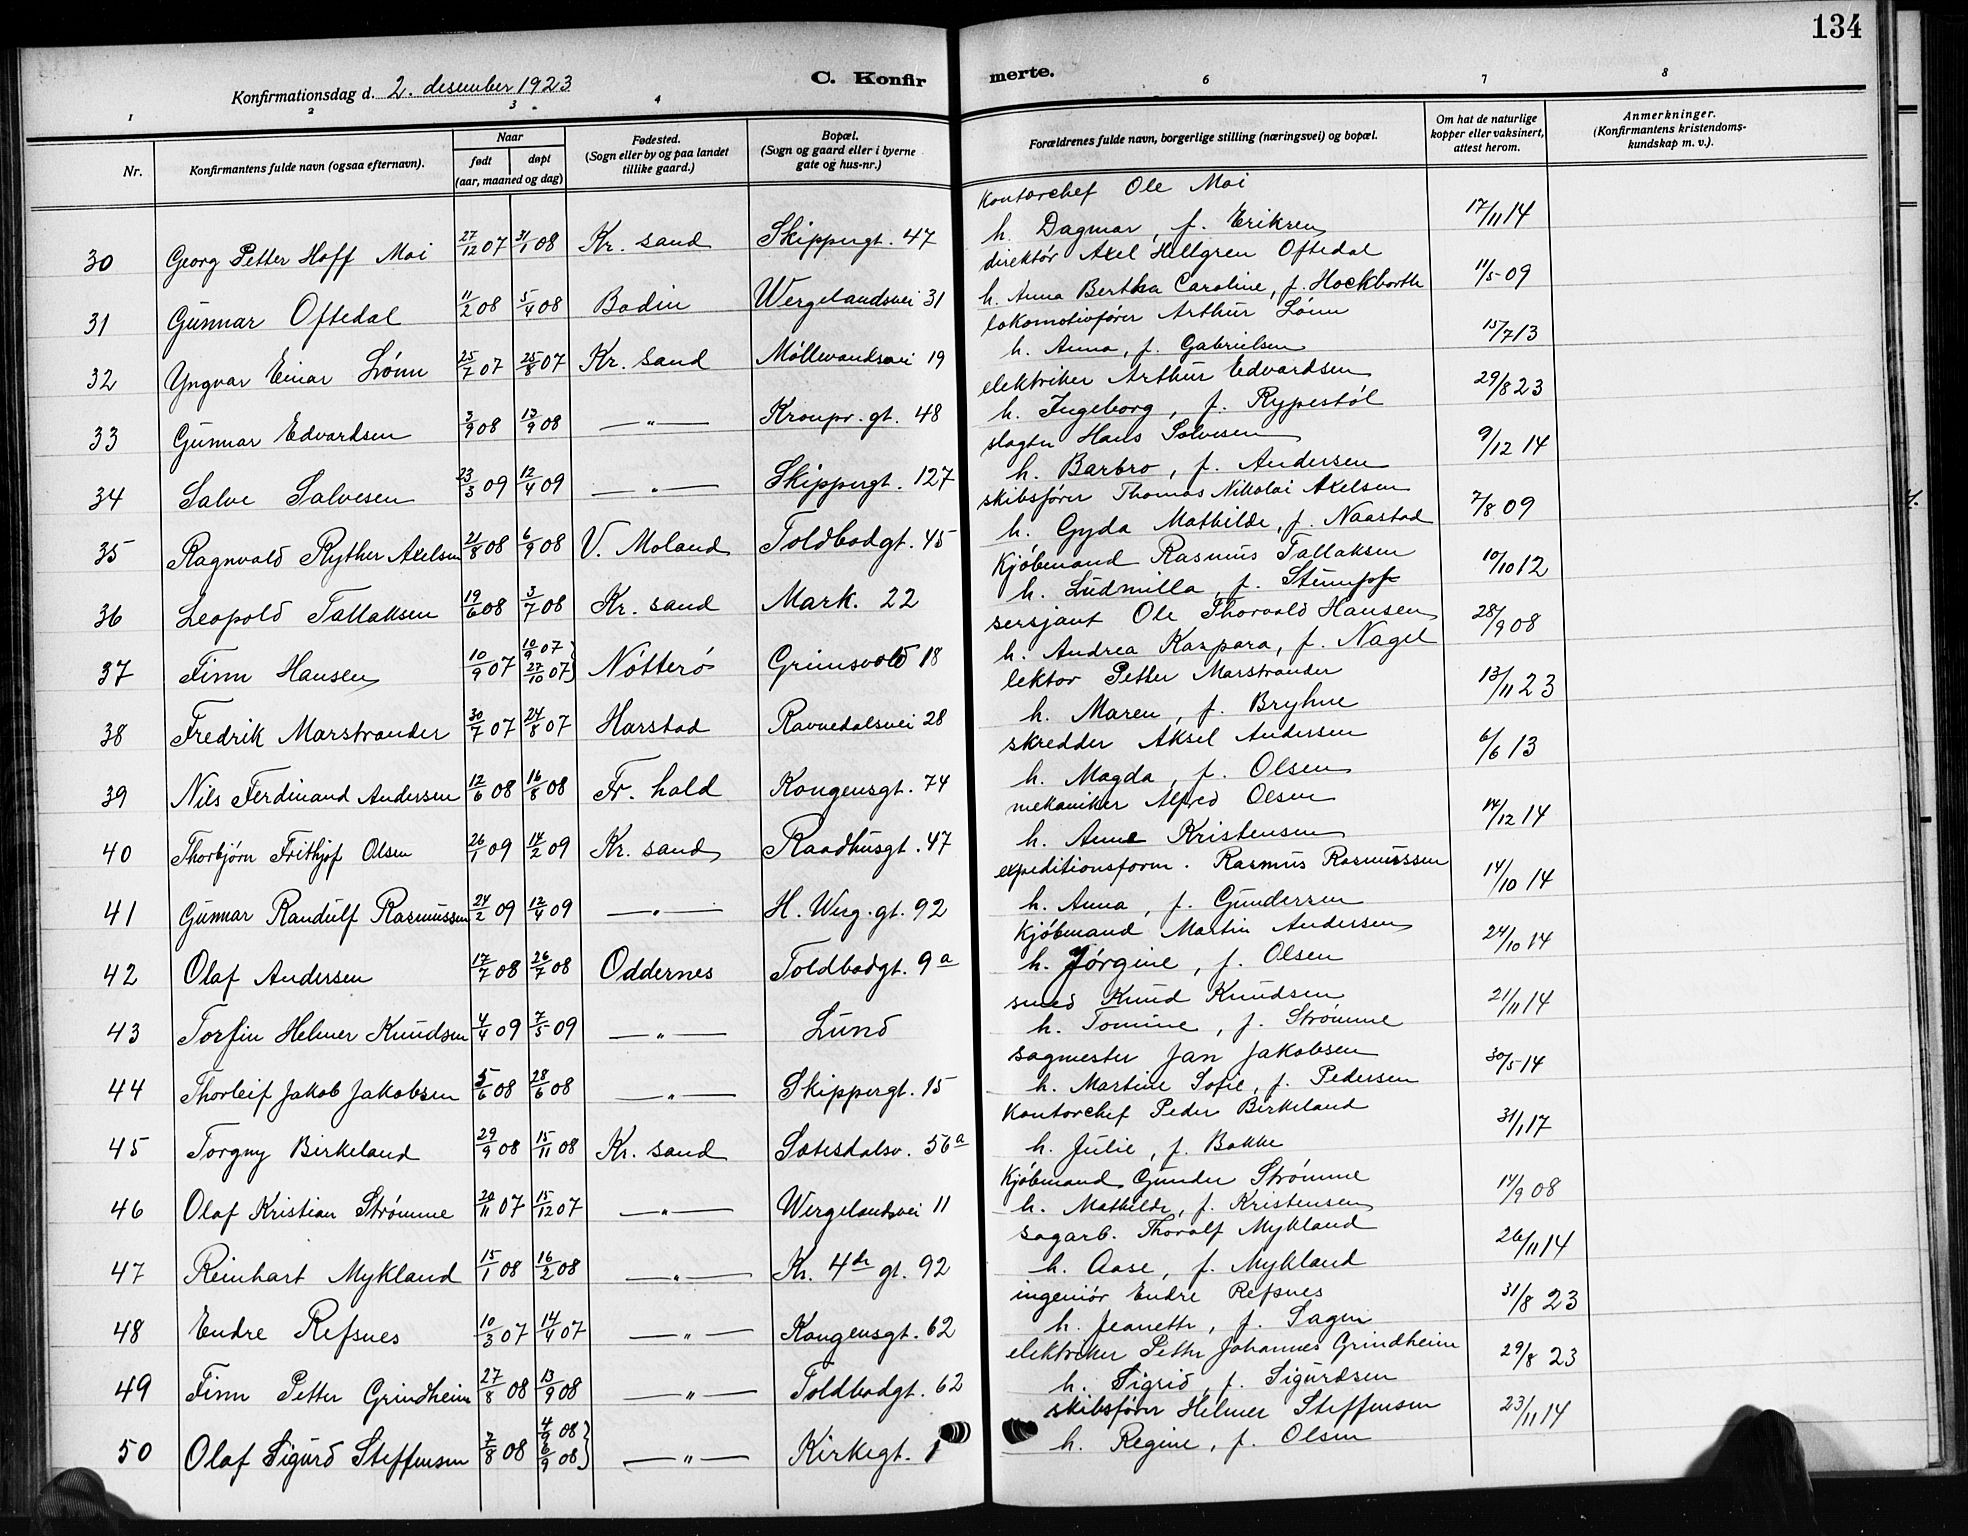 134
Konfirmationsdag d. 2. desember 1923
C. Konfirmerte.
1 2 3 4 6 7 8
Nr.
Konfirmantens fulde navn (ogsaa efternavn).
Naar
født døpt
(aar, maaned og dag)
Fødested.
(Sogn eller by og paa landet
tillike gaard.)
Bopæl.
(Sogn og gaard eller i byerne
gate og hus-nr.)
Forældrenes fulde navn, borgerlige stilling (næringsvei) og bopæl.
Om hat de naturlige
kopper eller vaksinert,
attest herom.
Anmerkninger.
(Konfirmantens kristendoms-
kundskap m. v.).
kontorchef Ole Moi
30 Georg Petter Hoff Moi 27/12 07 31/1 08 Kr. sand Skippergt. 47 h. Dagmar, f. Eriksen 17/11 14
direktør Axel Hellgren Oftedal
31 Gunnar Oftedal 11/2 08 5/4 08 Bodin Wergelandsvei 31 h. Anna Bertha Caroline, f. Hockborth 11/5 09
lokomotivfører Arthur Lønn
32 Yngvar Einar Lønn 25/7 07 25/8 07 Kr. sand Møllevandsvei 19 h. Anna, f. Gabrielsen 15/7 13
elektriker Arthur Edvardsen
33 Gunnar Edvardsen 3/9 08 13/9 08 —〃— Kronpr. gt. 48 h. Ingeborg, f. Rypestøl 29/8 23
slagter Hans Salvesen
34 Salve Salvesen 23/3 09 12/4 09 —〃— Skippergt. 127 h. Barbro, f. Andersen 9/12 14
skibsfører Thomas Nikolai Axelsen
35 Ragnvald Ryther Axelsen 21/8 08 6/9 08 V. Moland Toldbodgt. 45 h. Gyda Mathilde, f. Naastad 7/8 09
Kjøbmand Rasmus Tallaksen
36 Leopold Tallaksen 19/6 08 3/7 08 Kr. sand Mark. 22 h. Ludmilla, f. Stumpf 10/10 12
sersjant Ole Thorvald Hansen
37 Finn Hansen 10/9 07 10/9 07 27/10 07} Nøtterø Grimsvold 18 h. Andrea Kaspara, f. Nagel 28/9 08
lektor Petter Marstrander
38 Fredrik Marstrander 30/7 07 24/8 07 Harstad Ravnedalsvei 28 h. Maren, f. Bryhne 13/11 23
skredder Aksel Andersen
39 Nils Ferdinand Andersen 12/6 08 16/8 08 Fr. hald Kongensgt. 74 h. Magda, f. Olsen 6/6 13
mekaniker Alfred Olsen
40 Thorbjørn Frithjof Olsen 26/1 09 14/2 09 Kr. sand Raadhusgt. 47 h. Anne Kristensen 14/12 14
expeditionsform. Rasmus Rasmussen
41 Gunnar Randulf Rasmussen 24/2 09 12/4 09 —〃— H. Werg. gt. 92 h. Anna, f. Gundersen 14/10 14
Kjøbmand Martin Andersen
42 Olaf Andersen 17/7 08 26/7 08 Oddernes Toldbodgt. 9a h. Jørgine, f. Olsen 24/10 14
smed Knud Knudsen
43 Torfin Helmer Knudsen 4/4 09 7/5 09 —〃— Lund h. Tomine, f. Strømme 21/11 14
sagmester Jan Jakobsen
44 Thorleif Jakob Jakobsen 5/6 08 28/6 08 —〃— Skippergt. 15 h. Martine Sofie, f. Pedersen 30/5 14
Kontorchef Peder Birkeland
45 Torgny Birkeland 29/9 08 15/11 08 Kr. sand Setesdalsv. 56a h. Julie, f. Bakke 31/1 17
Kjøbmand Gunder Strømme
46 Olaf Kristian Strømme 20/11 07 15/12 07 —〃— Wergelandsvei 11 h. Mathilde, f. Kristensen 14/9 08
sagarb. Thoralf Mykland
47 Reinhart Mykland 15/1 08 16/2 08 —〃— Kr. 4de gt. 92 h. Aase, f. Mykland 26/11 14
ingeniør Endre Refsnes
48 Endre Refsnes 10/3 07 14/4 07 —〃— Kongensgt. 62 h. Jeanette, f. Sagen 31/8 23
elektriker Petter Johannes Grindheim
49 Finn Petter Grindheim 27/8 08 13/9 08 —〃— Toldbodgt. 62 h. Sigrid, f. Sigurdsen 29/8 23
skibsfører Helmer Steffensen
50 Olaf Sigurd Steffensen 7/8 08 4/9 08 6/9 08} —〃— Kirkegt. 1 h. Regine, f. Olsen 23/11 14